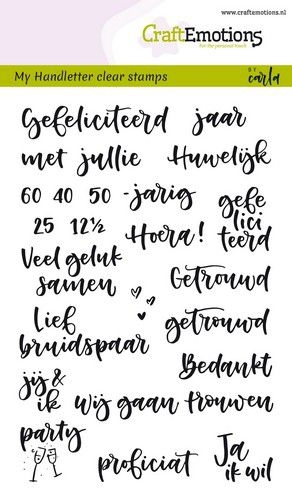 www.craftemotions.nl
CraftEmotions
for the personal touch
My Handletter clear stamps
BY carla
Gefeliciteerd jaar
met jullie Huwelijk
60 40 50 -jarig
gefe
lici
teerd
25 12½
Hoera!
Veel geluk
samen
Getrouwd
Lief
bruidspaar
getrouwd
Bedankt
jij &
ik
wij gaan trouwen
party
proficiat
Ja
ik wil